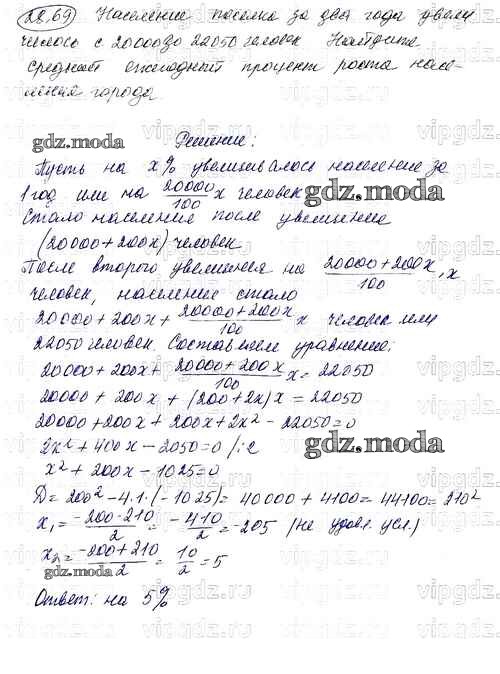 22.69 Население поселка за два года увели
чилось с 20000 до 22050 человек Найдите
средний ежегодный процент роста насе-
ления города
Решение:
gdz.moda
Пусть на x% увеличивалось население за
1 год или на 20000/100 x человек
gdz.moda
Стало население после увеличения
(20000+200x) человек
После второго увеличения на (20000+200x)/100 · x
человек, население стало
20000+200x+(20000+200x)/100 x человек или
22050 человек. Составляем уравнение:
20000+200x+(20000+200x)/100 x=22050
20000+200x+(200+2x)x=22050
20000+200x+200x+2x²-22050=0
2x²+400x-2050=0 /:2
gdz.moda
x²+200x-1025=0
D=200²-4·1·(-1025)=40000+4100=44100=210²
x₁=(-200-210)/2=-410/2=-205 (не удовл. усл.)
x₂=(-200+210)/2=10/2=5
gdz.moda
Ответ: на 5%